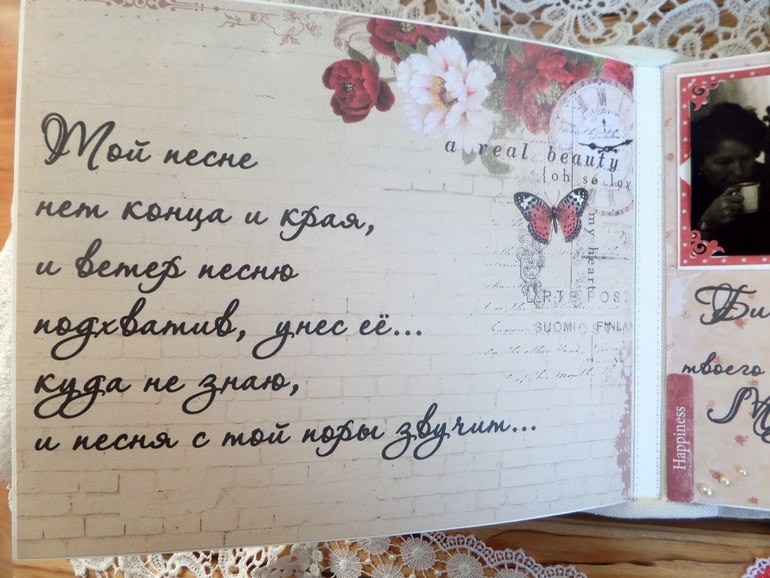 Мой песне
нет конца и края,
и ветер песню
подхватив, унес её...
куда не знаю,
и песня с той поры звучит...
a real beauty
{oh so lov
my heart
RTE POST
SUOMI FINLAN
Би
твоего
Happiness